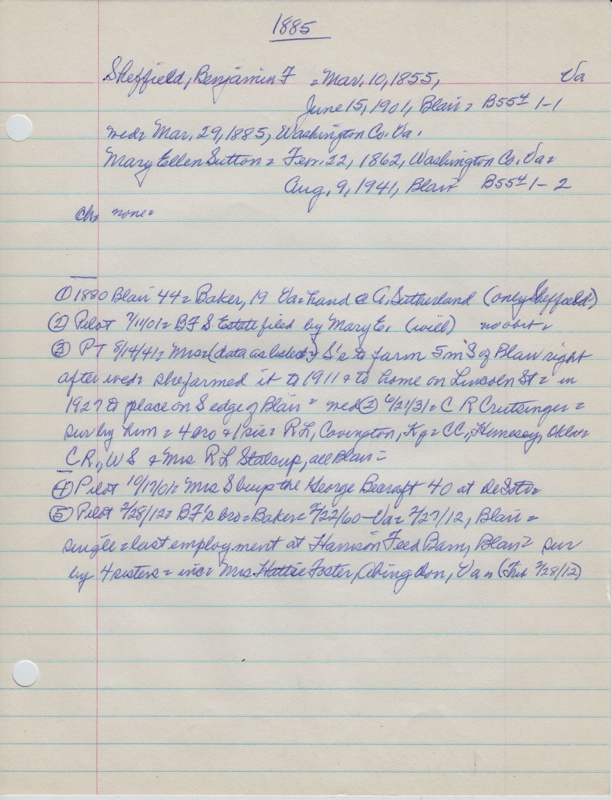 1885
Sheffield, Benjamin F = Mar. 10, 1855, Va
June 15, 1901, Blair = B55 1-1
wed= Mar. 29, 1885, Washington Co. Va.
Mary Ellen Sutton = Feb. 22, 1862, Washington Co. Va=
Aug. 9, 1941, Blair B55 1-2
ch= none=
① 1880 Blair 44= Baker, 19 Va= hand @ G. Sutherland (only Sheffield)
② Pilot 7/11/01= B F S Estate filed by Mary E. (will) no obit=
③ PT 8/14/41= Mrs= (data as listed) S's to farm 5 m S of Blair right
after wed= she farmed it to 1911 & to home on Lincoln St= in
1927 to place on S edge of Blair= wed ② 6/21/31= C R Crutsinger=
sur by him = 4 bro & 1 sis= R L, Covington, Ky= CC, Hennesey, Okla=
C.R., W S & Mrs R L Stalcup, all Blair=
④ Pilot 10/17/01= Mrs S buys the George Bearaft 40 at DeSoto=
⑤ Pilot 2/28/12= BF's bro= Baker= 2/22/60-Va= 2/27/12, Blair=
single= last employment at Harrison Feed Barn, Blair= sur
by 4 sisters= inc= Mrs Hattie Foster, Abingdon, Va= (Trib 2/28/12)